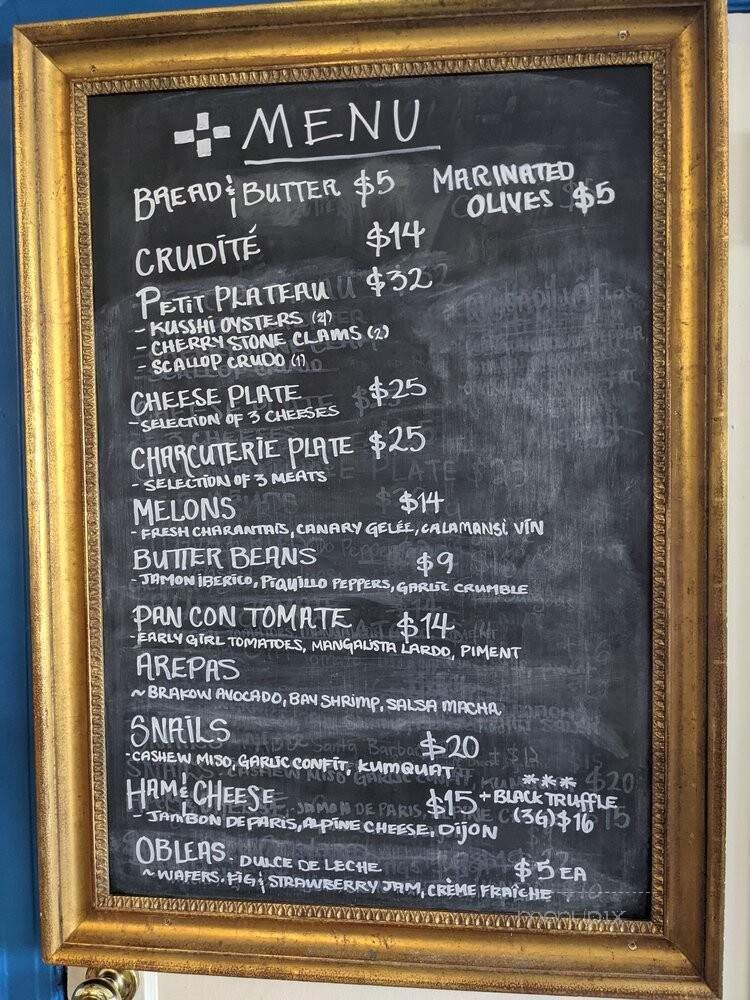 MENU
BREAD & BUTTER $5
MARINATED
OLIVES $5
CRUDITÉ $14
PETIT PLATEAU $32
- KUSSHI OYSTERS (4)
- CHERRY STONE CLAMS (2)
- SCALLOP CRUDO (1)
CHEESE PLATE $25
- SELECTION OF 3 CHEESES
CHARCUTERIE PLATE $25
- SELECTION OF 3 MEATS
MELONS $14
- FRESH CHARANTAIS, CANARY GELÉE, CALAMANSI VIN
BUTTER BEANS $9
- JAMON IBERICO, PIQUILLO PEPPERS, GARLIC CRUMBLE
PAN CON TOMATE $14
- EARLY GIRL TOMATOES, MANGALISTA LARDO, PIMENT
AREPAS
~ BRAKOW AVOCADO, BAY SHRIMP, SALSA MACHA
SNAILS $20
- CASHEW MISO, GARLIC CONFIT, KUMQUAT
HAM & CHEESE $15
- JAMBON DE PARIS, ALPINE CHEESE, DIJON
***
+ BLACK TRUFFLE
(3G) $16
OBLEAS - DULCE DE LECHE $5 EA
~ WAFERS. FIG & STRAWBERRY JAM, CRÈME FRAÎCHE
menupix